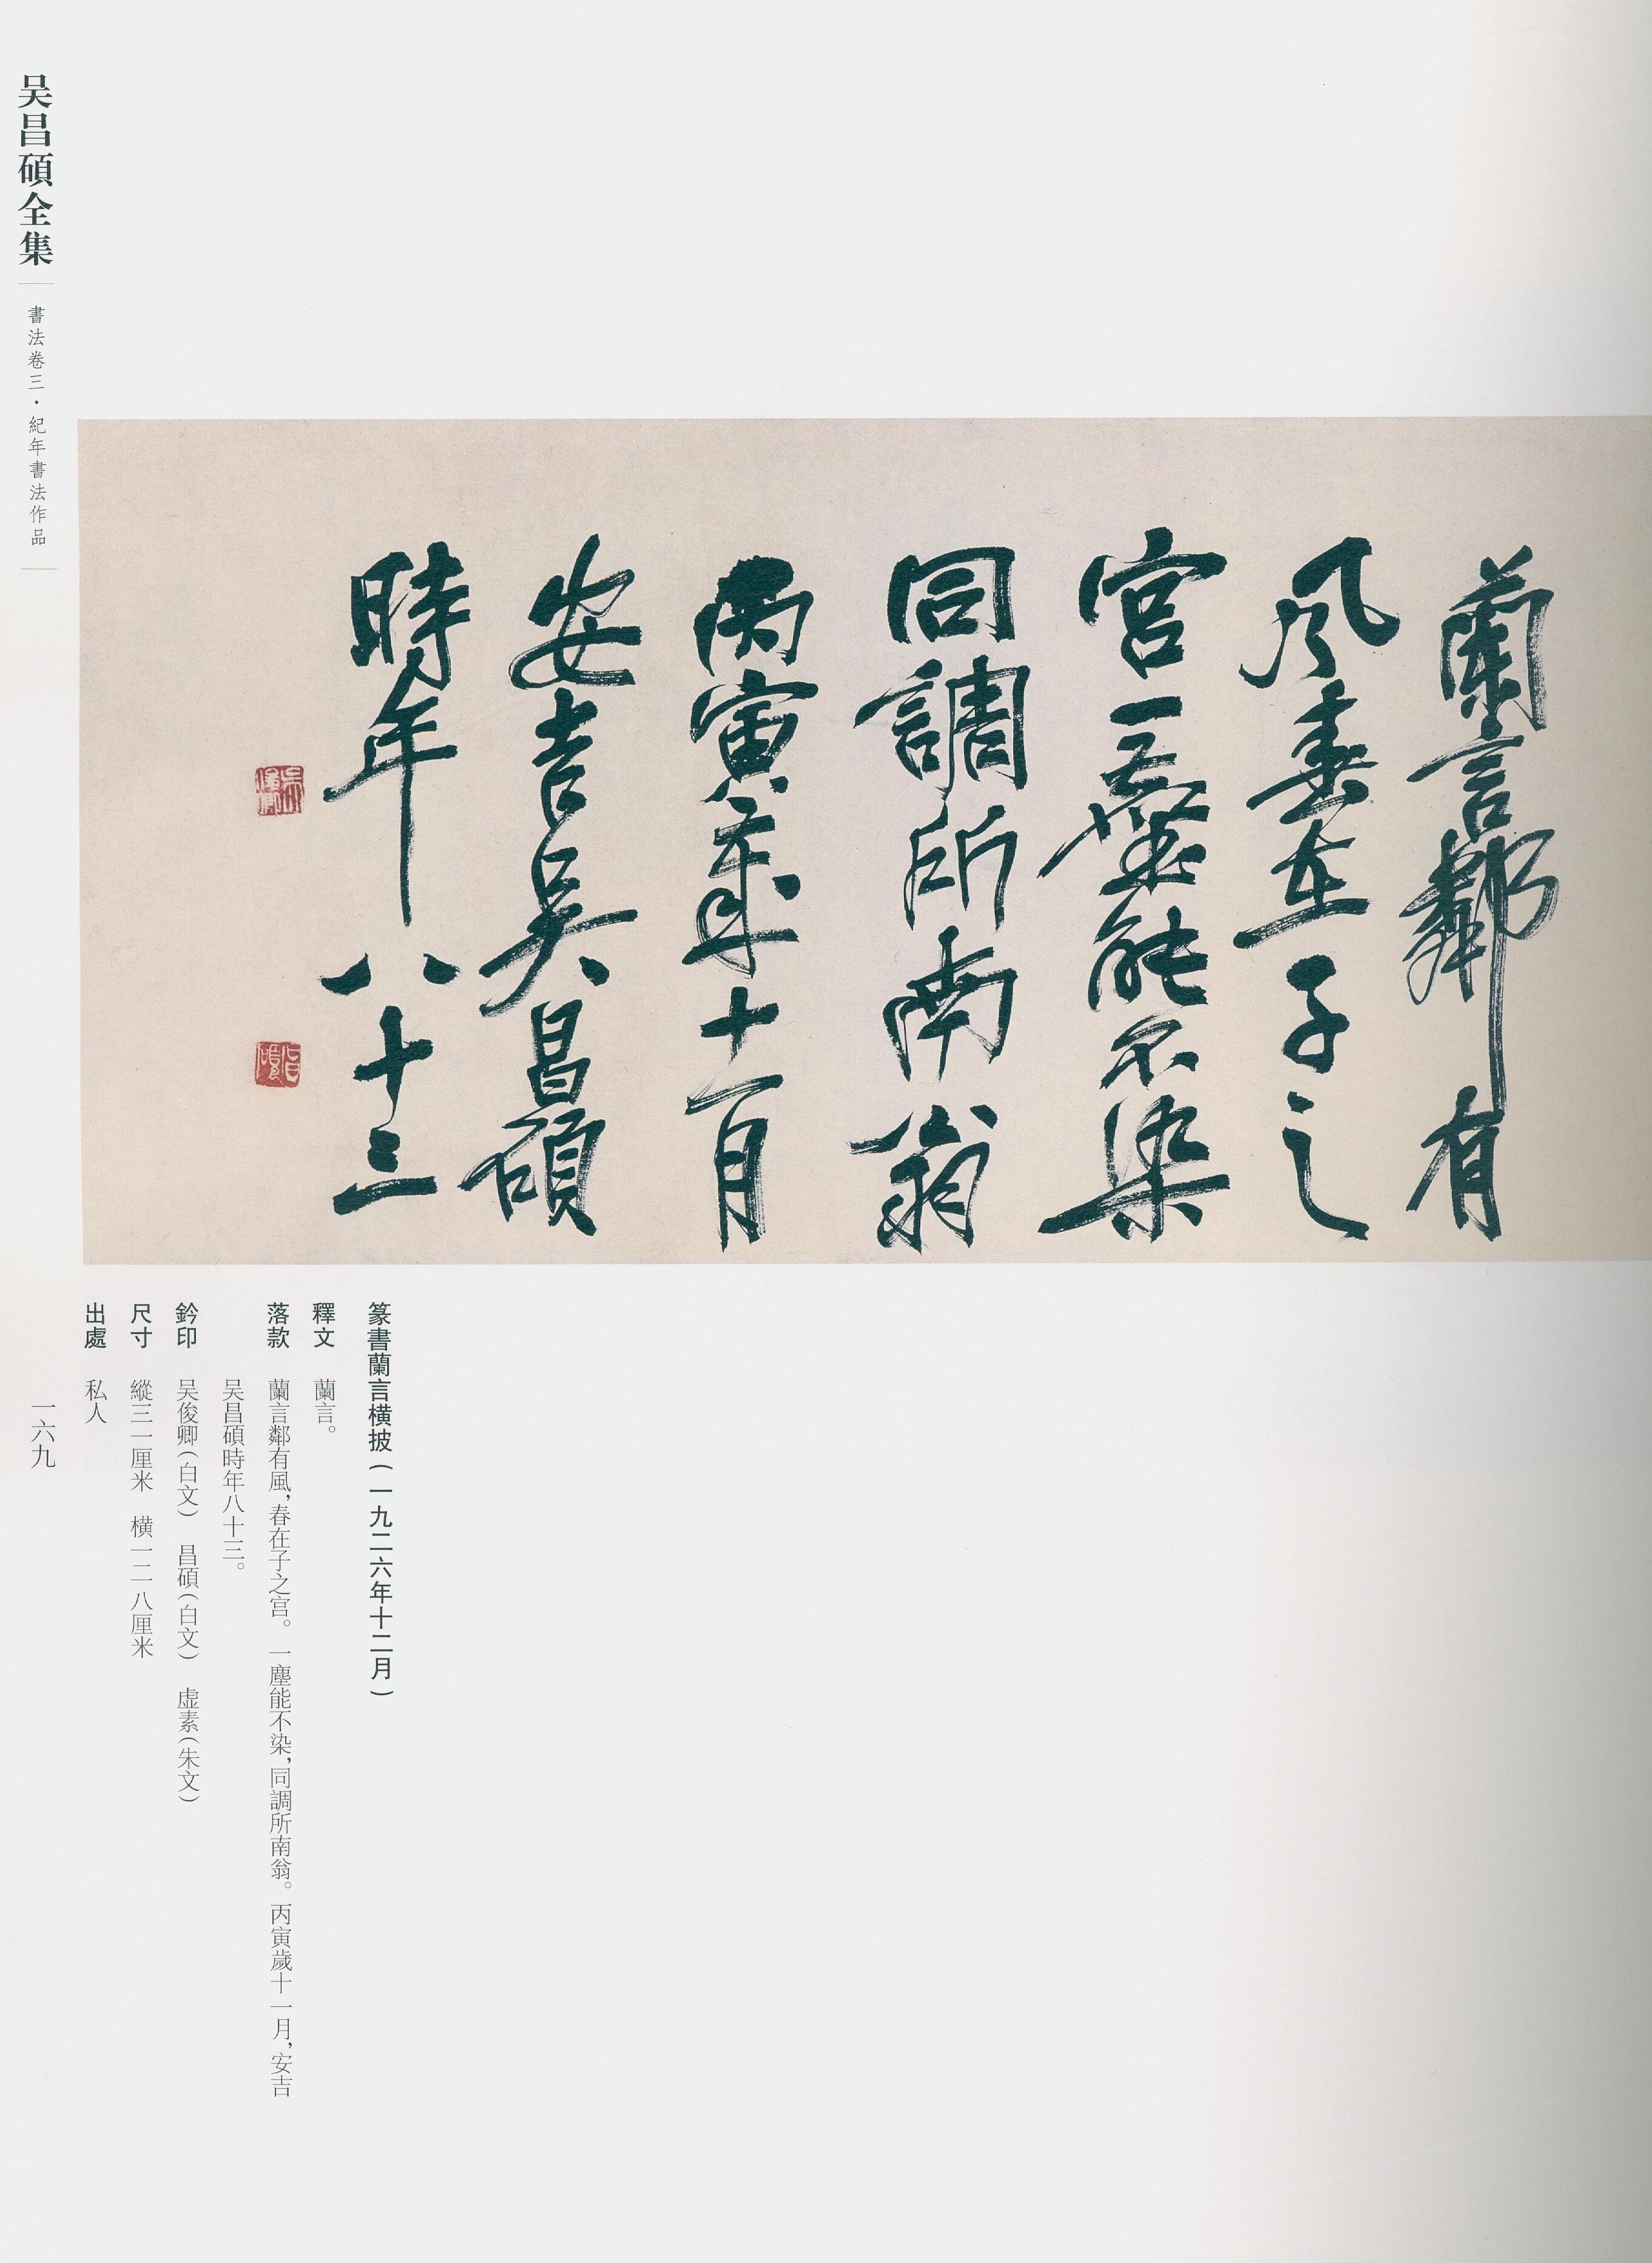 吴昌碩全集
書法卷三·紀年書法作品
蘭言鄰有
風春在子之
宫一塵能不染
同調所南翁
丙寅歲十一月
安吉吴昌碩
時年八十三
篆書蘭言横披(一九二六年十二月)
釋文 蘭言。
落款 蘭言鄰有風,春在子之宫。一塵能不染,同調所南翁。丙寅歲十一月,安吉
吴昌碩時年八十三。
鈐印 吴俊卿(白文) 昌碩(白文) 虚素(朱文)
尺寸 縱三一厘米 横一二八厘米
出處 私人
一六九